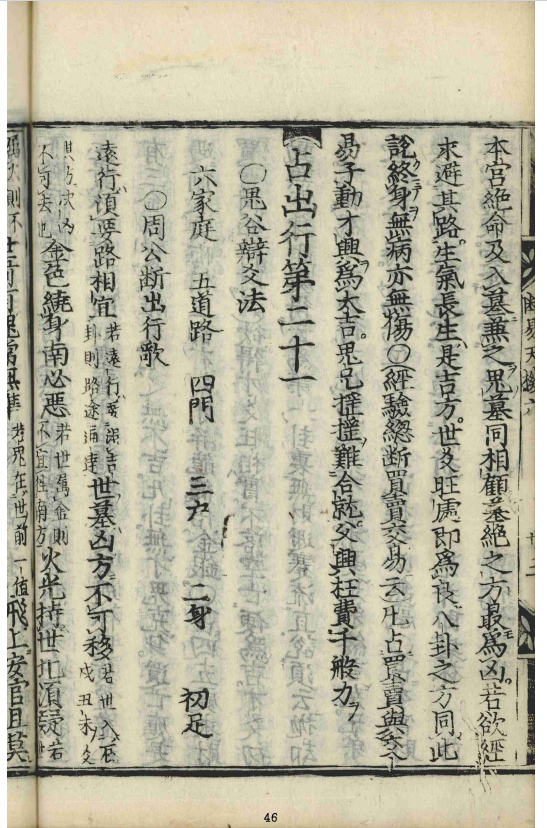 本宮絶命及入墓兼之鬼墓同相顧墓絶之方最為凶若欲經
求避其路生氣長生是吉方世爻旺處即為良八卦之方同此
訖終身無病亦無傷○經驗總断買賣交易云凡占買賣與交
易子動才興為大吉鬼兄摧摧難合就父興枉費千般力
占出行第二十一
○鬼谷辯爻法
六家庭 五道路 四門 三户 二身 初足
○周公断出行歌
遠行須要路相宜 若遠行 卦則路途通達 世墓凶方不可移 若世入 戌丑未爻
不可去也 金色繞身南必惡 若世屬金則 不宜往南方 火光持世北須疑 若世
若鬼在世前一值 飛上安官且莫
46